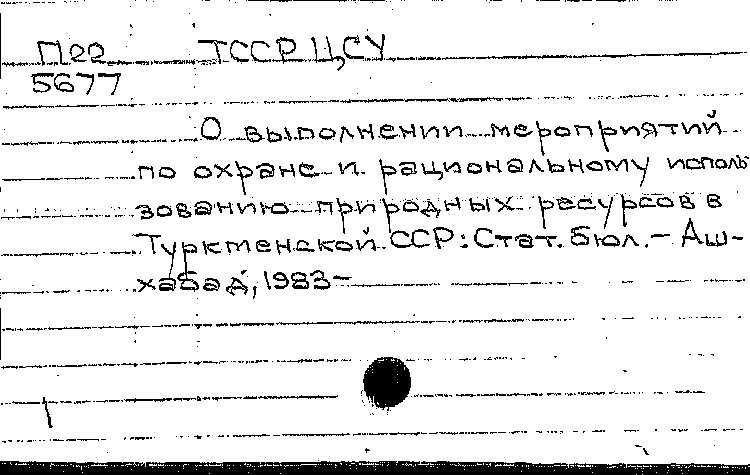 П22 ТССР ЦСУ
5677
О выполнении мероприятий
по охране и рациональному исполь
зованию природных ресурсов в
Туркменской ССР: Стат. бюл. – Аш-
хабад, 1983 –